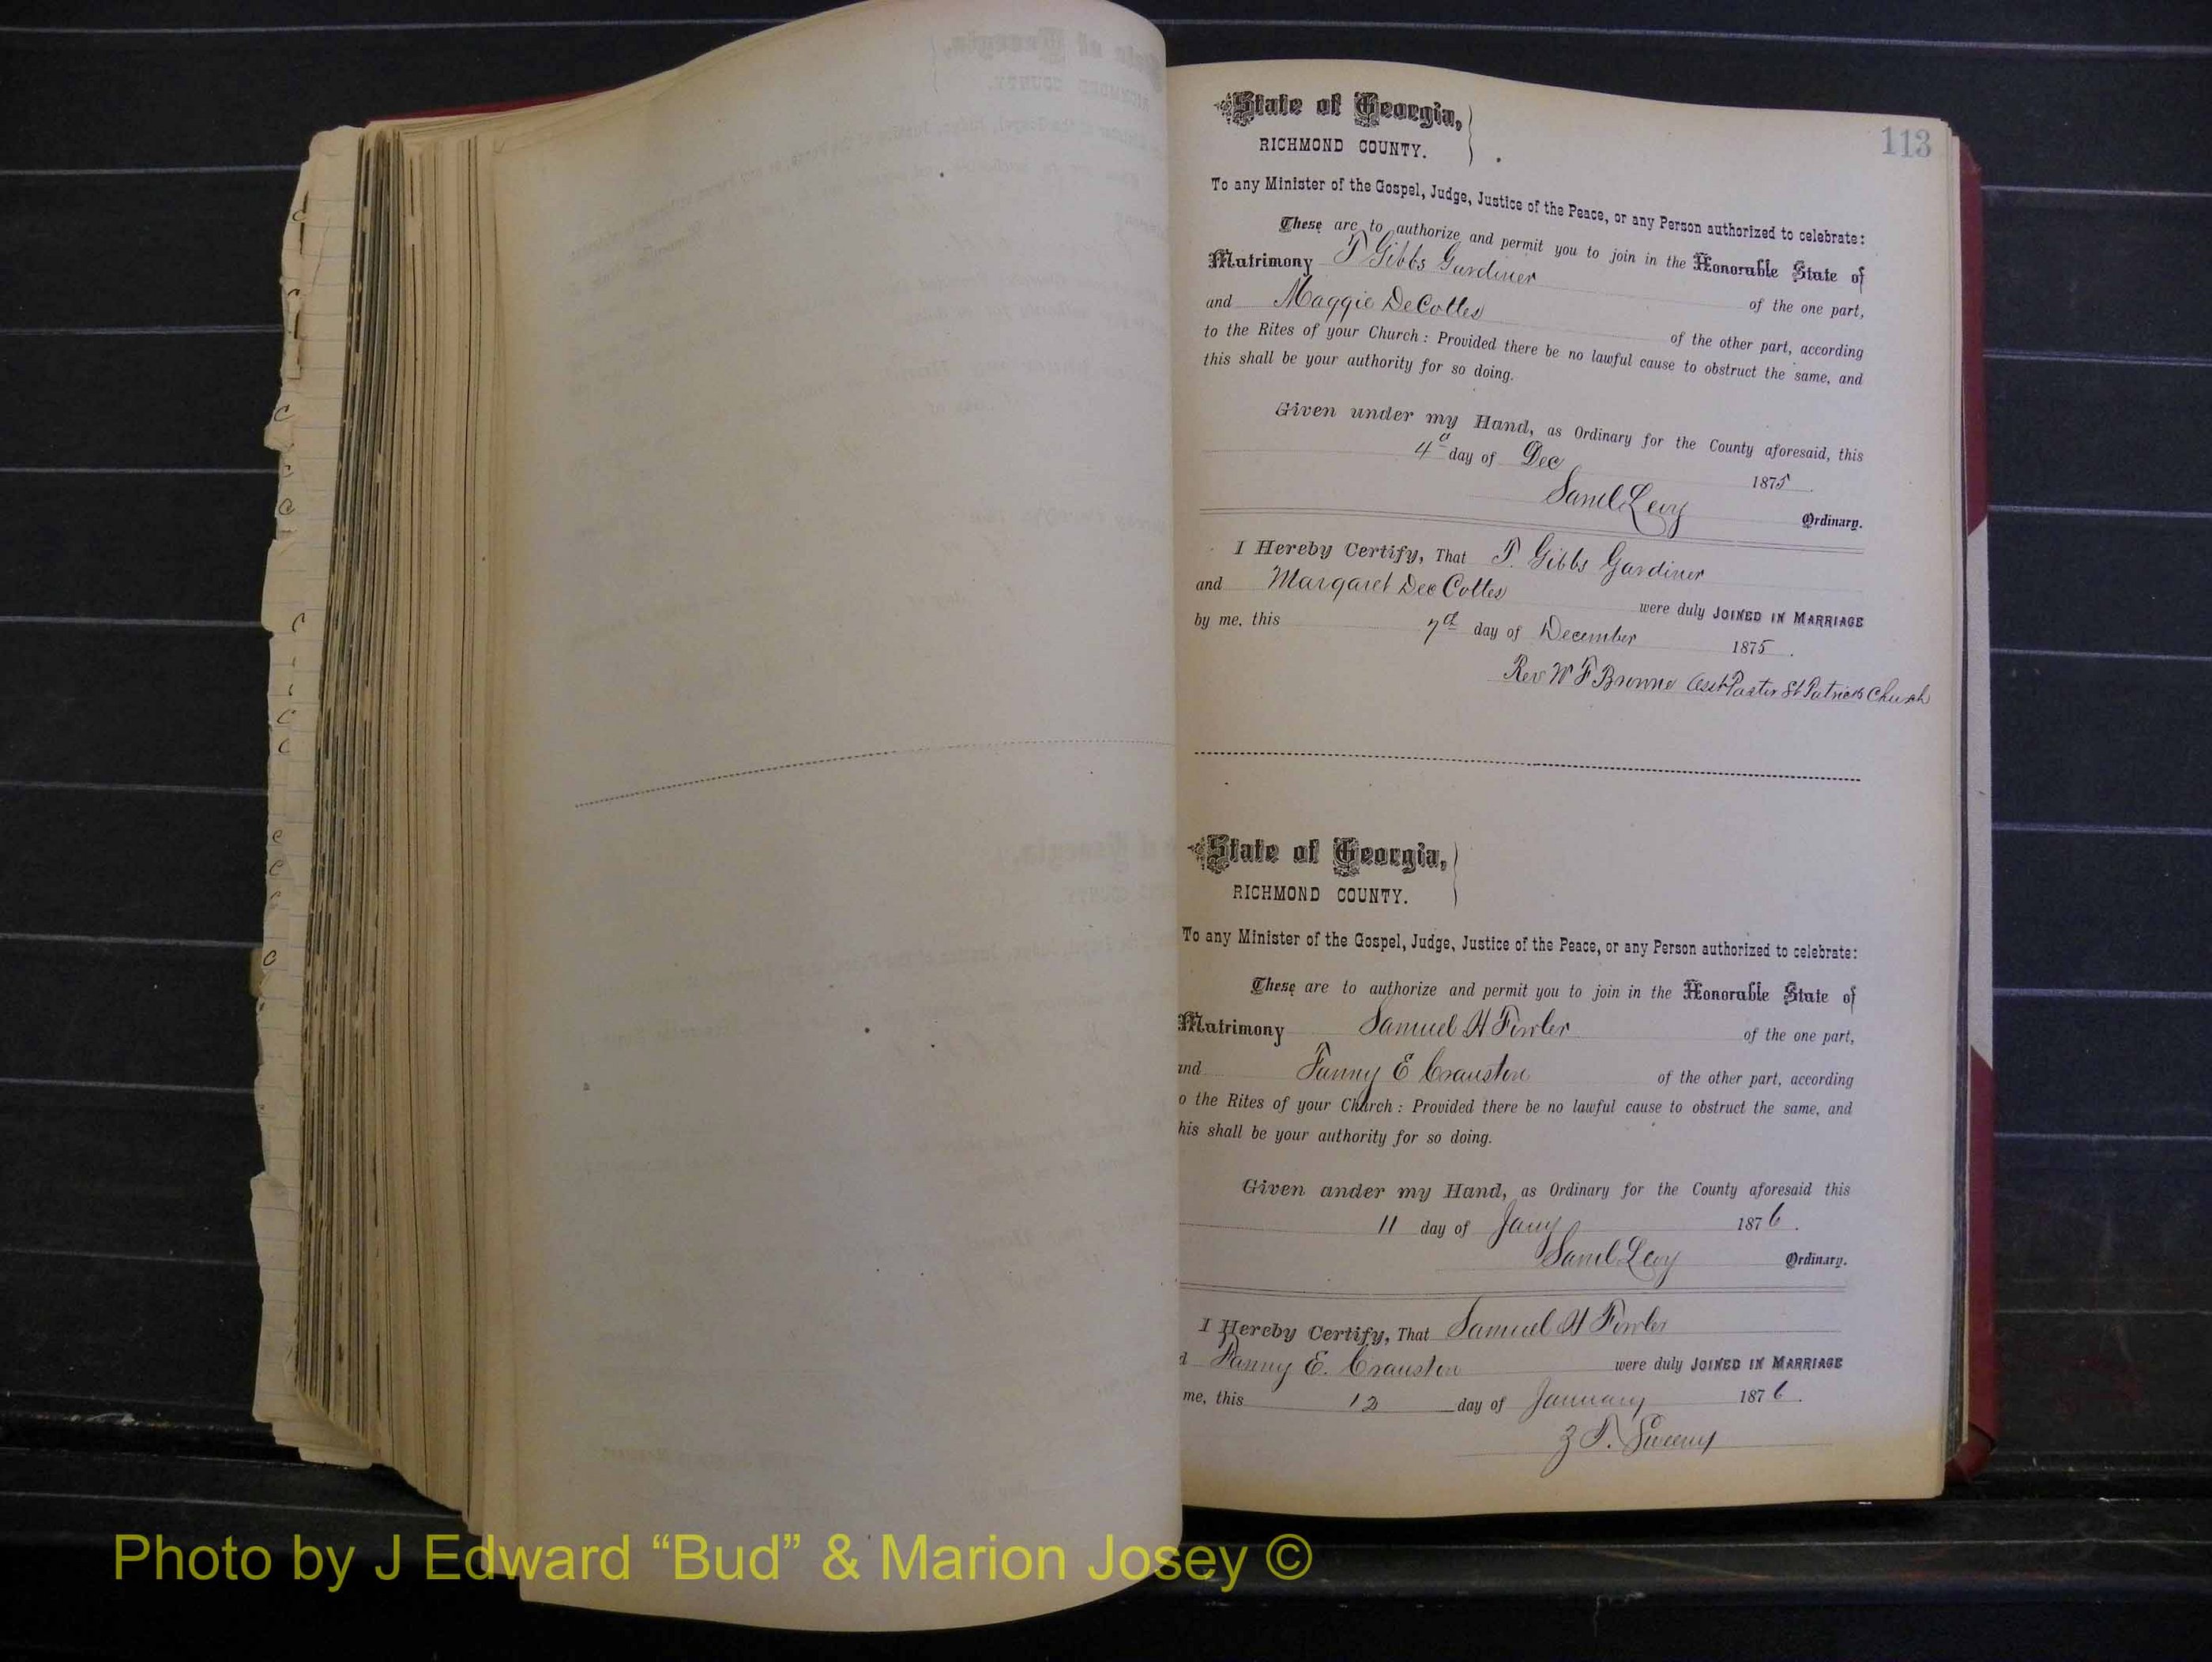 113
State of Georgia,
RICHMOND COUNTY.
To any Minister of the Gospel, Judge, Justice of the Peace, or any Person authorized to celebrate:
These are to authorize and permit you to join in the Honorable State of
Matrimony T Gibbs Gardiner of the one part,
and Maggie DeCottes of the other part, according
to the Rites of your Church: Provided there be no lawful cause to obstruct the same, and
this shall be your authority for so doing.
Given under my Hand, as Ordinary for the County aforesaid, this
4d day of Dec 1875
Saml Levy Ordinary.
I Hereby Certify, That T. Gibbs Gardiner
and Margaret Dee Cottes were duly JOINED IN MARRIAGE
by me, this 7d day of December 1875.
Rev W F Browne Asst Pastor St Patricks Church
State of Georgia,
RICHMOND COUNTY.
To any Minister of the Gospel, Judge, Justice of the Peace, or any Person authorized to celebrate:
These are to authorize and permit you to join in the Honorable State of
Matrimony Samuel H Fowler of the one part,
and Fanny E Cranston of the other part, according
o the Rites of your Church: Provided there be no lawful cause to obstruct the same, and
his shall be your authority for so doing.
Given under my Hand, as Ordinary for the County aforesaid this
11 day of Jany 1876.
Saml Levy Ordinary.
I Hereby Certify, That Samuel H Fowler
d Fanny E. Cranston were duly JOINED IN MARRIAGE
me, this 12 day of January 1876.
Z T. Sweeny
Photo by J Edward “Bud” & Marion Josey ©